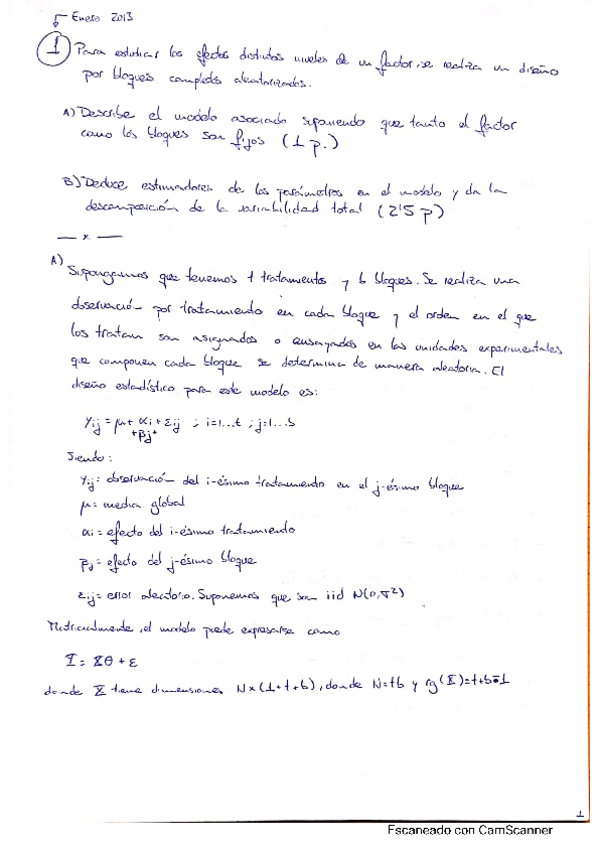 Enero 2013
1 Para estudiar los efectos distintos niveles de un factor, se realiza un diseño
por bloques completos aleatorizados.
A) Describe el modelo asociado suponiendo que tanto el factor
como los bloques son fijos (1 p.)
B) Deduce estimadores de los parámetros en el modelo y da la
descomposición de la variabilidad total (2'5 p)
— x —
A)
Supongamos que tenemos t tratamientos y b bloques. Se realiza una
observación por tratamiento en cada bloque y el orden en el que
los tratam son asignados o ensayados en las unidades experimentales
que componen cada bloque se determina de manera aleatoria. El
diseño estadístico para este modelo es:
yij = μ + αi + εij ; i=1...t ; j=1...b
+βj+
Siendo:
yij = observación del i-ésimo tratamiento en el j-ésimo bloque
μ = media global
αi = efecto del i-ésimo tratamiento
βj = efecto del j-ésimo bloque
εij = error aleatorio. Suponemos que son iid N(0,σ²)
Matricialmente, el modelo puede expresarse como
Y = Xθ + ε
donde X tiene dimensiones N×(1+t+b), donde N=tb y rg(X)=t+b-1
1
Escaneado con CamScanner